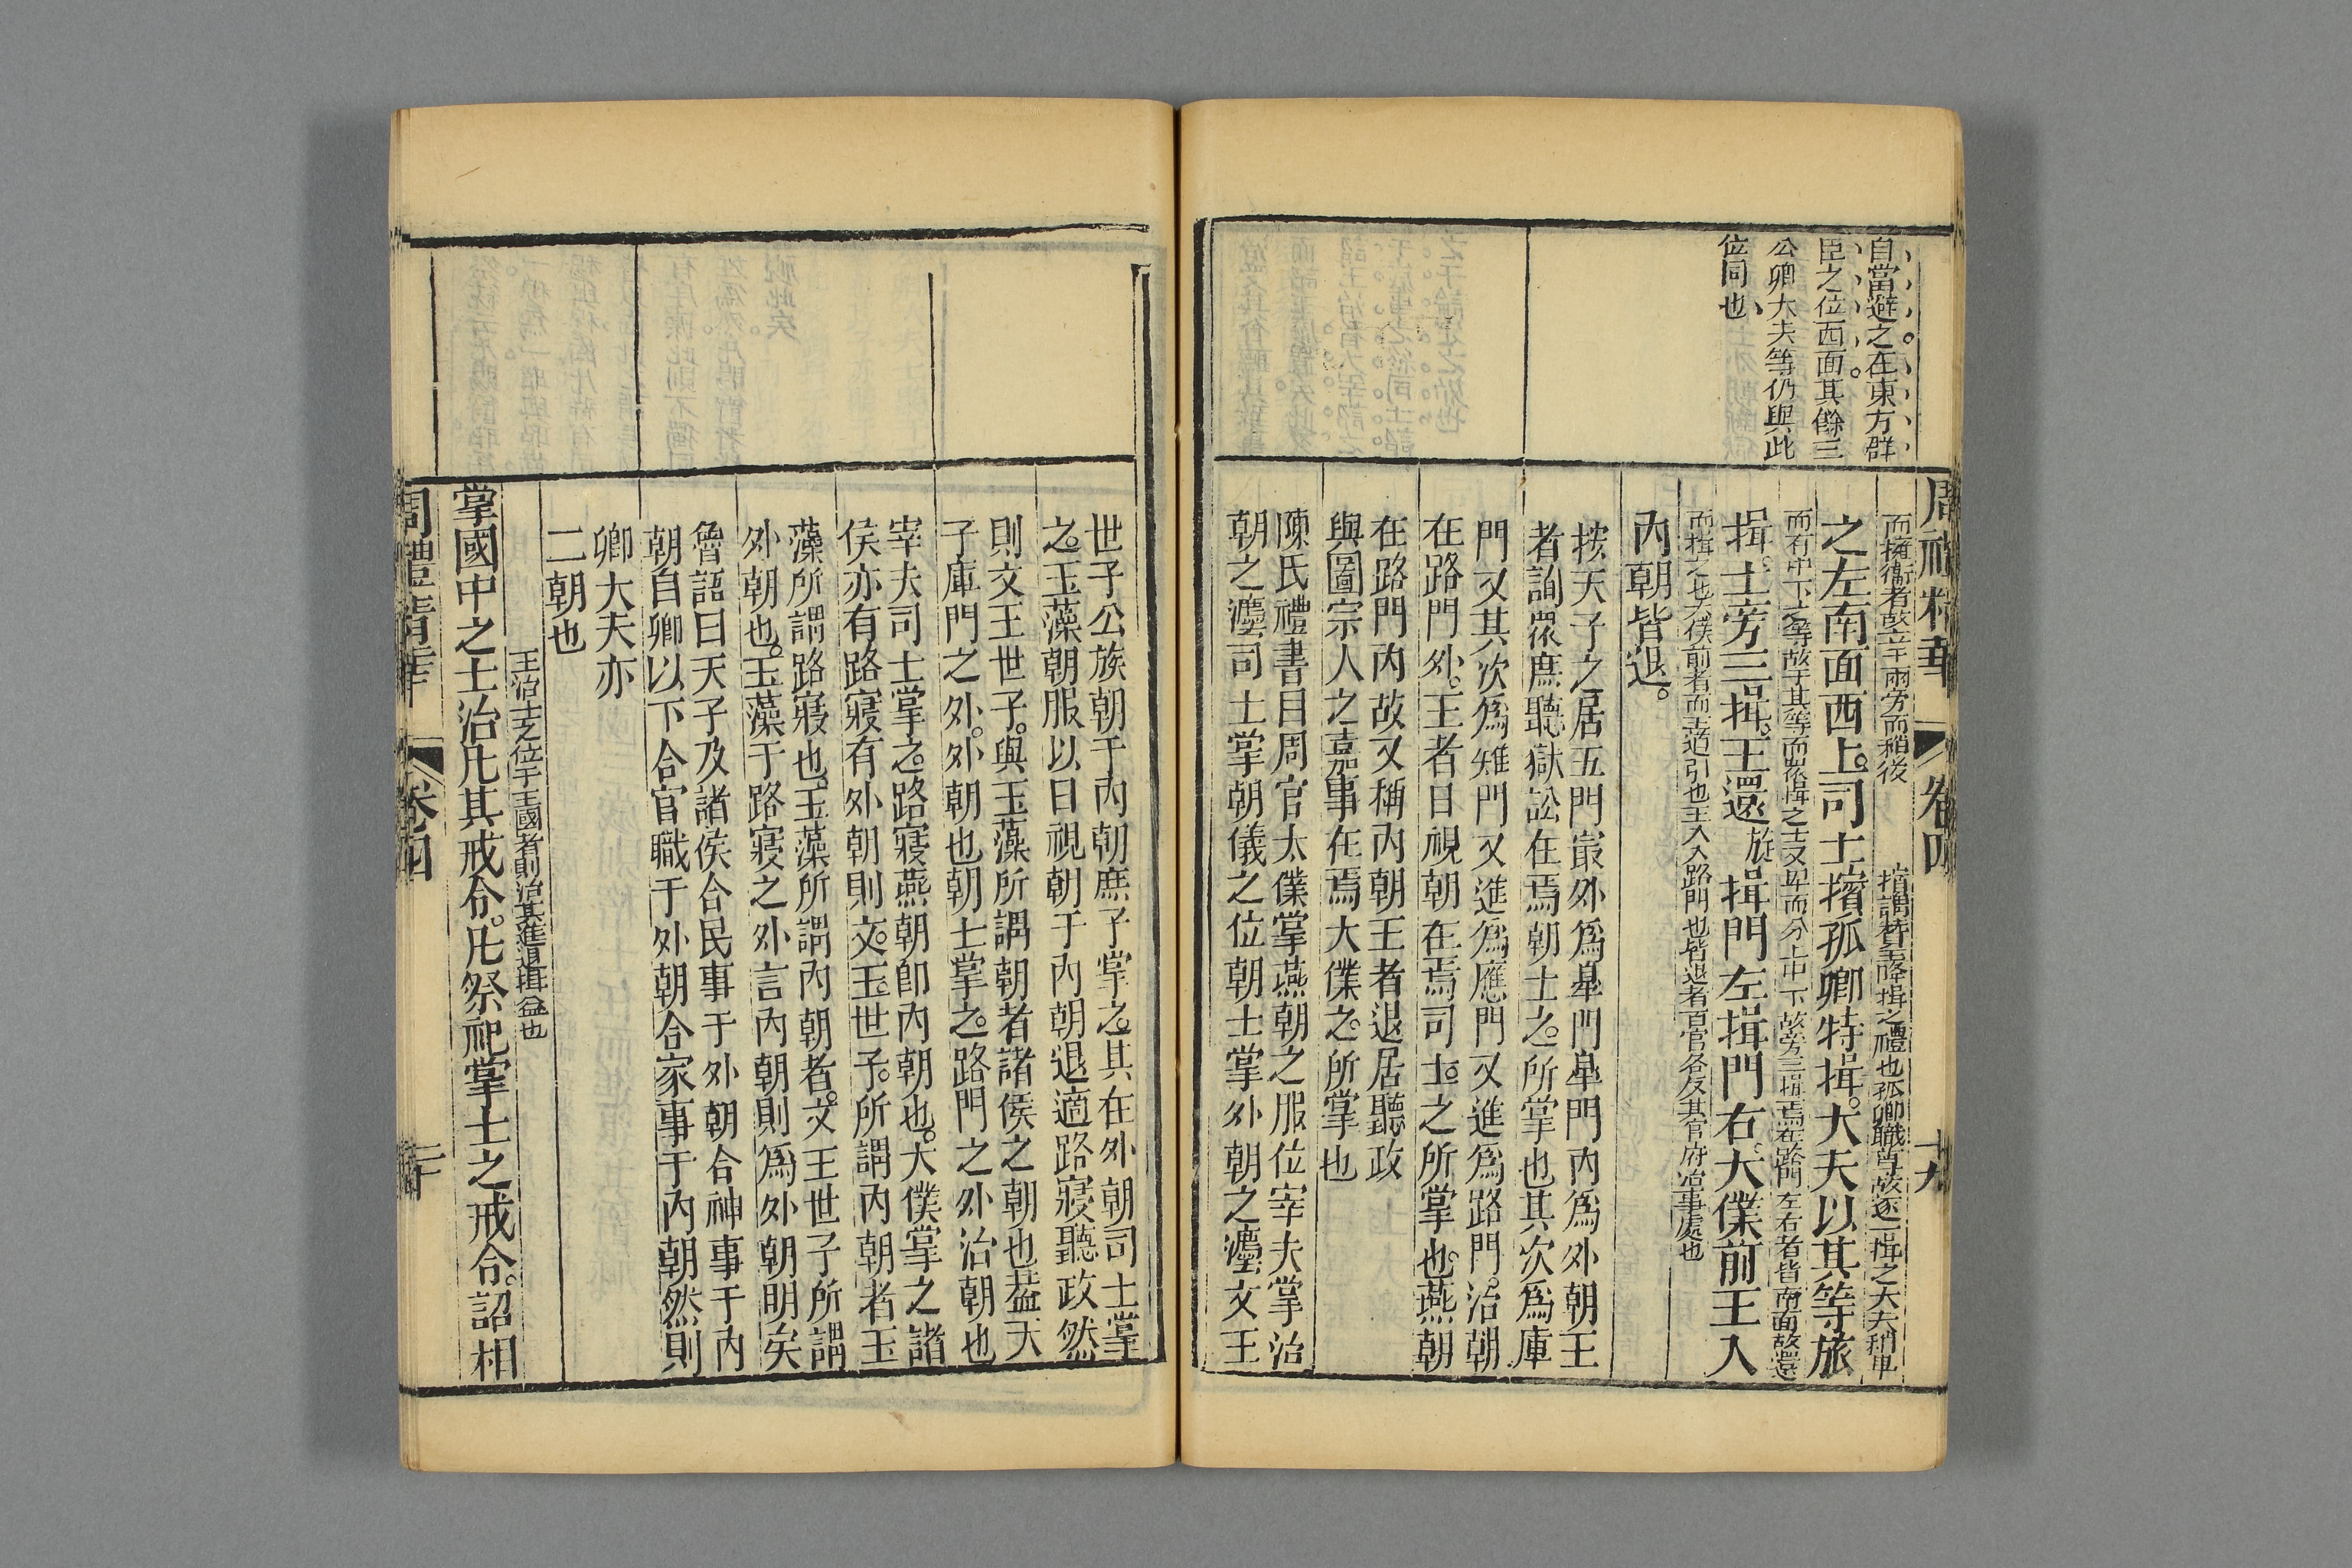 自當避之在東方群
臣之位西面其餘三
公卿大夫等仍與此
位同也
周禮精華
卷四
十九
而擁衞者故立于兩旁而稍後
擯謂特王降揖之禮也孤卿職尊故逐一揖之大夫稍卑
之左南面西上司士擯孤卿特揖大夫以其等旅
而有中下之等故于其等而眾揖之士又卑而分上中下故旁三揖焉在路門左右者皆南面故還
揖士旁三揖王還旋揖門左揖門右大僕前王入
而揖之也大僕前者而王適引也王入入路門也皆退者百官各反其官府治事處也
內朝皆退
按天子之居五門最外爲皐門皐門內爲外朝王
者詢眾庶聽獄訟在焉朝士之所掌也其次爲庫
門又其次爲雉門又進爲應門又進爲路門治朝
在路門外王者日視朝在焉司士之所掌也燕朝
在路門內故又稱內朝王者退居聽政
與圖宗人之嘉事在焉大僕之所掌也
陳氏禮書目周官太僕掌燕朝之服位宰夫掌治
朝之灋司士掌朝儀之位朝士掌外朝之灋文王
世子公族朝于內朝庶子掌之其在外朝司士掌
之玉藻朝服以日視朝于內朝退適路寢聽政然
則文王世子與玉藻所謂朝者諸侯之朝也蓋天
子庫門之外外朝也朝士掌之路門之外治朝也
宰夫司士掌之路寢燕朝卽內朝也大僕掌之諸
侯亦有路寢有外朝則文王世子所謂內朝者玉
藻所謂路寢也玉藻所謂內朝者文王世子所謂
外朝也玉藻于路寢之外言內朝則爲外朝明矣
魯語曰天子及諸侯合民事于外朝合神事于內
朝自卿以下合官職于外朝合家事于內朝然則
卿大夫亦
二朝也
王治士之位于王國者則治其進退揖益也
掌國中之士治凡其戒令凡祭祀掌士之戒令詔相
周禮精華
卷四
二十